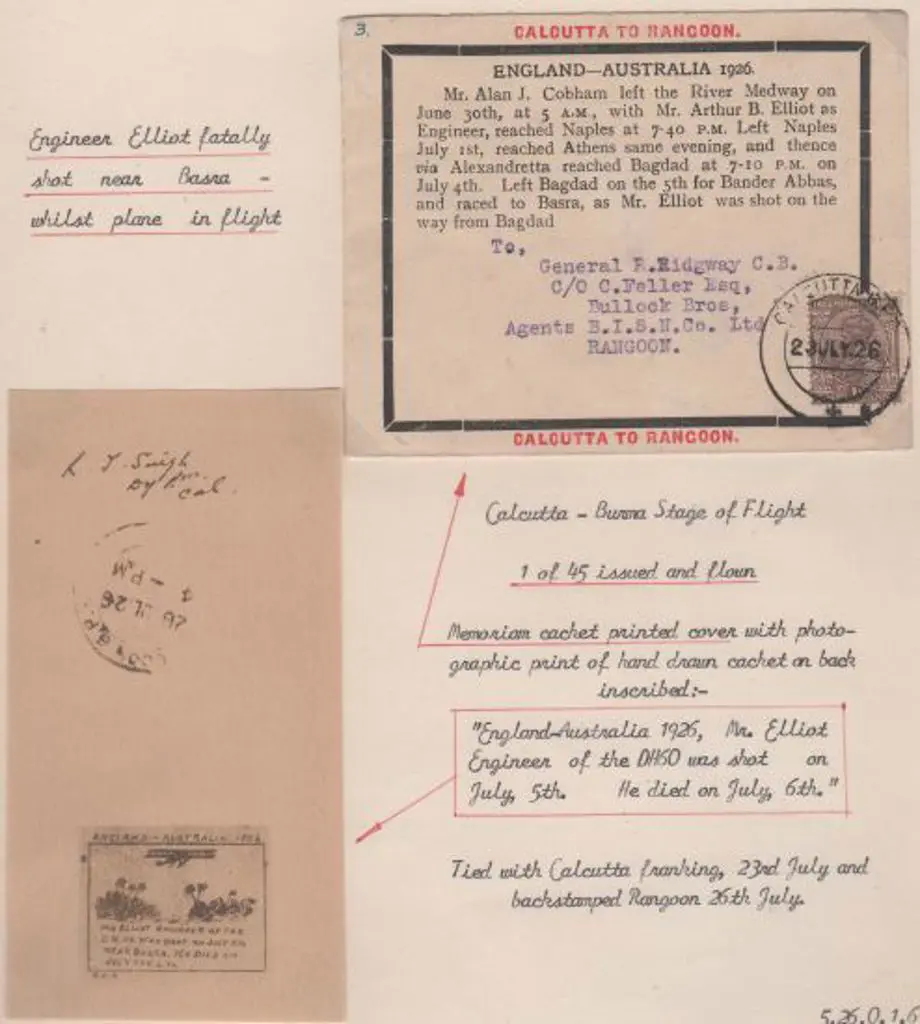 3.
CALCUTTA TO RANGOON.
ENGLAND—AUSTRALIA 1926.
Mr. Alan J. Cobham left the River Medway on
June 30th, at 5 A.M., with Mr. Arthur B. Elliot as
Engineer, reached Naples at 7-40 P.M. Left Naples
July 1st, reached Athens same evening, and thence
via Alexandretta reached Bagdad at 7-10 P.M. on
July 4th. Left Bagdad on the 5th for Bander Abbas,
and raced to Basra, as Mr. Elliot was shot on the
way from Bagdad
To,
General R.Ridgway C.B.
C/O C.Feller Esq,
Bullock Bros,
Agents B.I.S.N.Co. Ltd
RANGOON.
CALCUTTA
23 JULY. 26
CALCUTTA TO RANGOON.
Engineer Elliot fatally
shot near Basra -
whilst plane in flight
Calcutta - Burma Stage of Flight
1 of 45 issued and flown
Memoriam cachet printed cover with photo-
graphic print of hand drawn cachet on back
inscribed:-
"England-Australia 1926, Mr. Elliot
Engineer of the DH50 was shot on
July, 5th. He died on July, 6th."
Tied with Calcutta franking, 23rd July and
backstamped Rangoon 26th July.
Singh
Cal.
- PM
26 JL 26
ENGLAND - AUSTRALIA 1926
MR ELLIOT ENGINEER OF THE
WAS SHOT ON JULY 5TH
NEAR BASRA. HE DIED ON
5.26.0.1.6